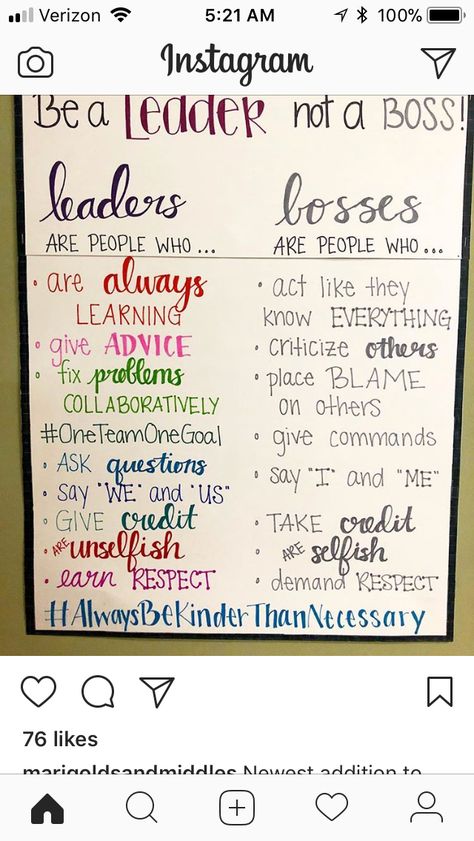 Verizon 5:21 AM 100%
Instagram
Be a LEADER not a BOSS!
leaders
ARE PEOPLE WHO...
• are always
LEARNING
• give ADVICE
• fix problems
COLLABORATIVELY
#OneTeamOneGoal
• ASK questions
• say "WE" and "US"
• GIVE credit
• ARE unselfish
• earn RESPECT
bosses
ARE PEOPLE WHO...
• act like they
know EVERYTHING
• criticize others
• place BLAME
on others
• give commands
• say "I" and "ME"
• TAKE credit
• ARE selfish
• demand RESPECT
#AlwaysBeKinderThanNecessary
76 likes
marigoldsandmiddles Newest addition to